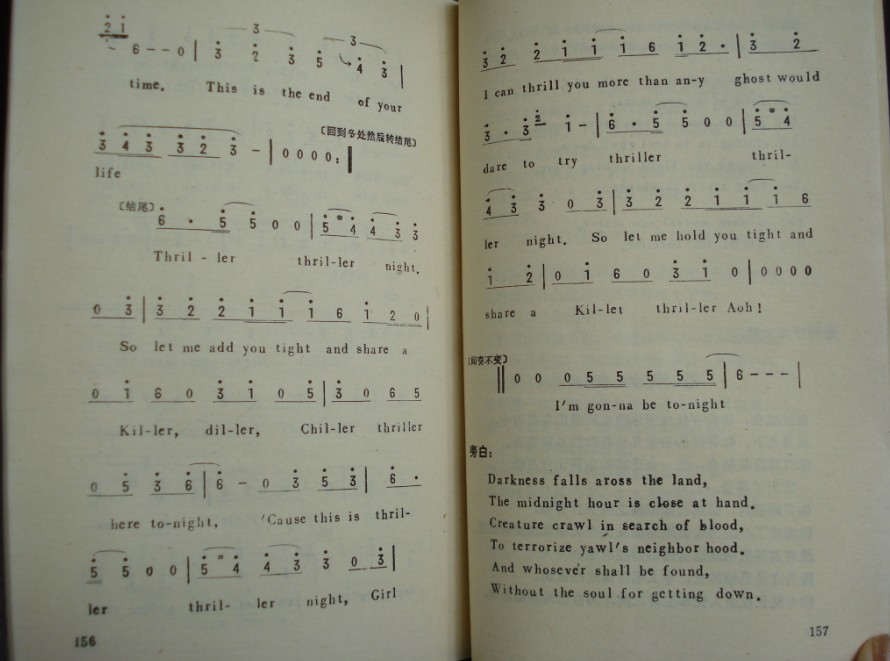 2 1
6 - - 0 | 3 2 3 5 4 3 |
3 3
time. This is the end of your
〔回到多处然后转结尾〕
3 4 3 3 2 3 - | 0 0 0 0 :|
life
〔结尾〕
6 · 5 5 0 0 | 5 4 4 3 3
Thril - ler thril-ler night.
0 3 | 3 2 2 1 1 1 6 1 2 0 |
So let me add you tight and share a
0 1 6 0 3 1 0 5 | 3 0 6 5
Kil-ler, dil-ler, Chil-ler thriller
0 5 3 6 | 6 - 0 3 5 3 | 6 ·
here to-night, 'Cause this is thril-
5 5 0 0 | 5 4 4 3 3 0 3 |
ler thril- ler night, Girl
156
3 2 2 1 1 1 6 1 2 · | 3 2
I can thrill you more than an-y ghost would
3 · 3 2 1 - | 6 · 5 5 0 0 | 5 4
dare to try thriller thril-
4 3 3 0 3 | 3 2 2 1 1 1 6
ler night. So let me hold you tight and
1 2 | 0 1 6 0 3 1 0 | 0 0 0 0
share a Kil-let thril-ler Aoh!
‖ 0 0 0 5 5 5 5 5 | 6 - - - |
I'm gon-na be to-night
旁白:
Darkness falls aross the land,
The midnight hour is close at hand.
Creature crawl in search of blood,
To terrorize yawl's neighbor hood.
And whosever shall be found,
Without the soul for getting down.
157